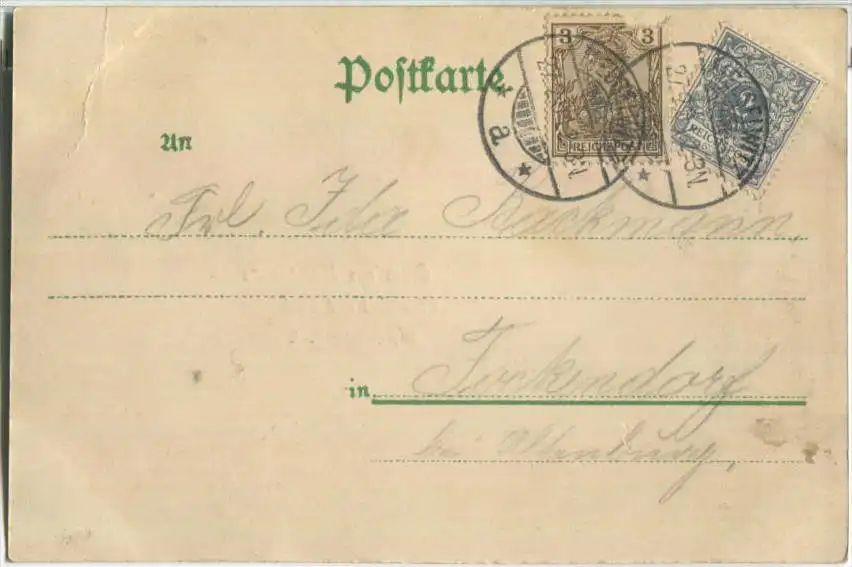 Postkarte.
3 3
REICHSPOST
REICHSPOST
a
An
Frl. Ida Backmann,
in Fockendorf
bei Altenburg,